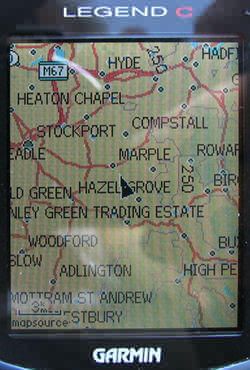 LEGEND C
HYDE
250
HADF
M67
HEATON CHAPEL
STOCKPORT
COMPSTALL
EADLE
MARPLE
ROWAR
LD GREEN
HAZEL GROVE
250
BIR
NLEY GREEN TRADING ESTATE
WOODFORD
BU
SLOW
ADLINGTON
HIGH PE
MOTTRAM ST ANDREW
mapsource
ESTBURY
GARMIN